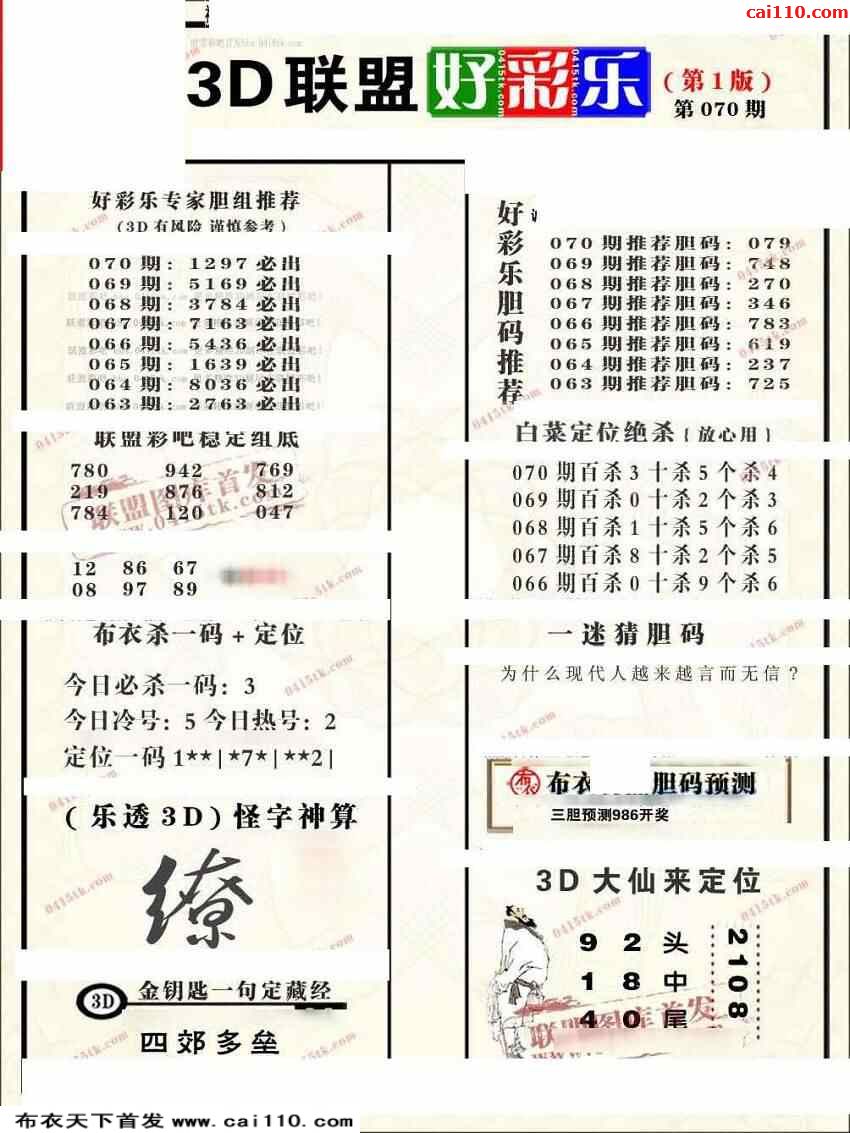 cai110.com
3D联盟好彩乐
(第1版)
第070期
好彩乐专家胆组推荐
(3D有风险 谨慎参考)
070期: 1297必出
069期: 5169必出
068期: 3784必出
067期: 7163必出
066期: 5436必出
065期: 1639必出
064期: 8036必出
063期: 2763必出
联盟彩吧稳定组底
780 942 769
219 876 812
784 120 047
12 86 67
08 97 89
布衣杀一码+定位
今日必杀一码: 3
今日冷号: 5 今日热号: 2
定位一码1**|*7*|**2|
(乐透3D)怪字神算
缭
3D 金钥匙一句定藏经
四郊多垒
好彩乐胆码推荐
070期推荐胆码: 079
069期推荐胆码: 748
068期推荐胆码: 270
067期推荐胆码: 346
066期推荐胆码: 783
065期推荐胆码: 619
064期推荐胆码: 237
063期推荐胆码: 725
白菜定位绝杀{放心用}
070期百杀3十杀5个杀4
069期百杀0十杀2个杀3
068期百杀1十杀5个杀6
067期百杀8十杀2个杀5
066期百杀0十杀9个杀6
一迷猜胆码
为什么现代人越来越言而无信?
布衣 胆码预测
三胆预测986开奖
3D大仙来定位
9 2头
1 8中
4 0尾
2108
联盟图库首发
www.0415tk.com
布衣天下首发 www.cai110.com